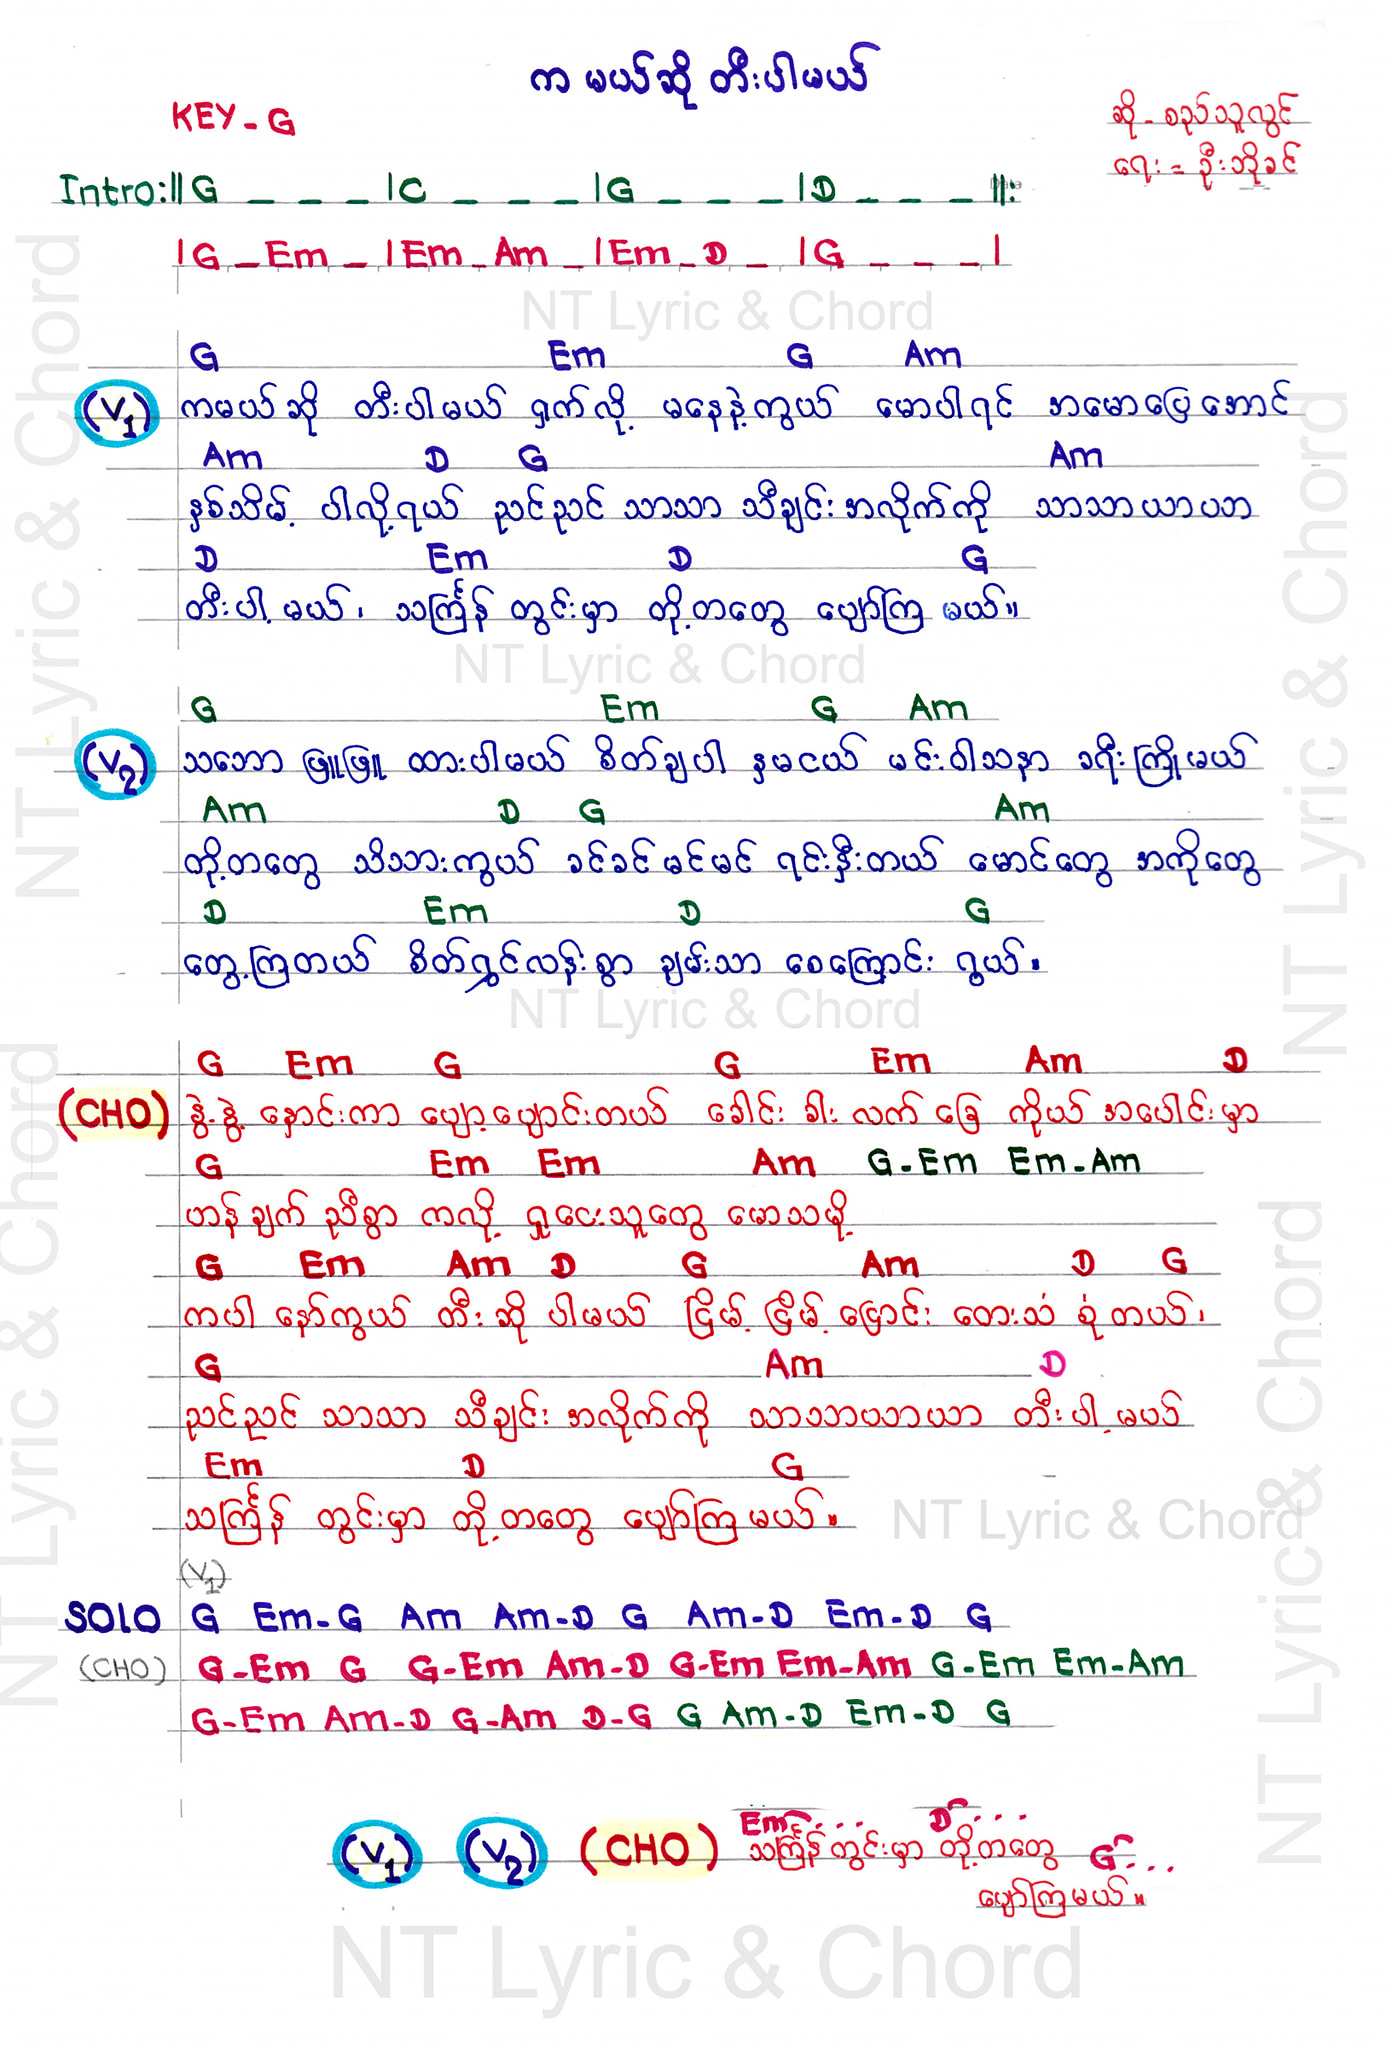 က မယ်ဆို တီးပါမယ်
KEY - G
ဆို - စည်သူလွင်
ရေး = ဦးဘိုခင်
Intro:|| G _ _ _ | C _ _ _ | G _ _ _ | D _ _ _ ||:
| G _ Em _ | Em _ Am _ | Em _ D _ | G _ _ _ |
NT Lyric & Chord
G Em G Am
(V1) ကမယ်ဆို တီးပါမယ် ရှက်လို့ မနေနဲ့ကွယ် မောပါရင် အမောပြေအောင်
Am D G Am
နှစ်သိမ့် ပါလို့ရယ် ညင်ညင် သာသာ သီချင်းအလိုက်ကို သာသာယာပဘ
D Em D G
တီးပါ့မယ်၊ သင်္ကြန် တွင်းမှာ တို့တတွေ ပျော်ကြ မယ်။
NT Lyric & Chord
G Em G Am
(V2) သဘော ဖြူဖြူ ထားပါမယ် စိတ်ချပါ နှမငယ် မင်းဝါသနာ ခရီးကြိုမယ်
Am D G Am
တို့တတွေ သိသားကွယ် ခင်ခင်မင်မင် ရင်းနှီးတယ် မောင်တွေ အကိုတွေ
D Em D G
တွေ့ကြတယ် စိတ်ရွှင်လန်းစွာ ချမ်းသာ စေကြောင်း ရွယ်။
NT Lyric & Chord
G Em G G Em Am D
(CHO) နွဲ့နွဲ့ နှောင်းကာ ပျော့ပျောင်းတယ် ခေါင်း ခါး လက် ခြေ ကိုယ် အပေါင်းမှာ
G Em Em Am G-Em Em-Am
ဟန်ချက် ညီစွာ ကလို့ ရှုငေးသူတွေ မောသမို့
G Em Am D G Am D G
ကပါ နော်ကွယ် တီးဆို ပါမယ် ငြိမ့် ငြိမ့် ငြောင်း တေးသံ စုံတယ်၊
G Am D
ညင်ညင် သာသာ သီချင်း အလိုက်ကို သာသာပဘာယာ တီးပါ့မယ်
Em D G
သင်္ကြန် တွင်းမှာ တို့တတွေ ပျော်ကြမယ်။
NT Lyric & Chord
(V1)
SOLO G Em-G Am Am-D G Am-D Em-D G
(CHO) G-Em G G-Em Am-D G-Em Em-Am G-Em Em-Am
G-Em Am-D G-Am D-G G Am-D Em-D G
Em... D...
(V1) (V2) (CHO) သင်္ကြန်တွင်းမှာ တို့တတွေ G...
ပျော်ကြမယ်။
NT Lyric & Chord
NT Lyric & Chord
NT Lyric & Chord
NT Lyric & Chord
NT Lyric & Chord